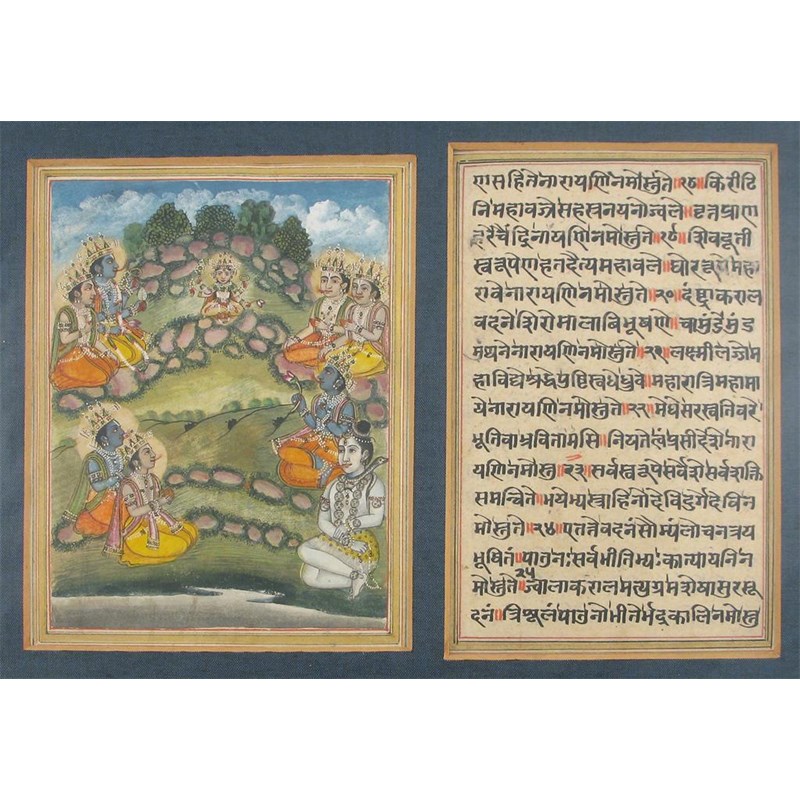 णासहितेनारायणिनमोस्तुते॥१८॥किरीटि
निमहावज्रेसहस्रनयनोज्वले॥वृत्रप्राण
हरेचैंद्रिनारायणिनमोस्तुते॥१९॥शिवदूती
स्वरूपेणहतदैत्यमहाबले॥घोररूपेमहा
रावेनारायणिनमोस्तुते॥२०॥दंष्ट्राकराल
वदनेशिरोमालाविभूषणे॥चामुंडेमुंड
मथनेनारायणिनमोस्तुते॥२१॥लक्ष्मीलज्जेम
हाविद्येश्रद्धेपुष्टिस्वधेध्रुवे॥महारात्रिमहामा
येनारायणिनमोस्तुते॥२२॥मेधेसरस्वतिवरे
भूतिबाभ्रवितामसि॥नियतेत्वंप्रसीदेशेनारा
यणिनमोस्तु॥२३॥सर्वस्वरूपेसर्वेशेसर्वशक्ति
समन्विते॥भयेभ्यस्त्राहिनोदेविदुर्गेदेविन
मोस्तुते॥२४॥एतत्तेवदनंसौम्यंलोचनत्रय
भूषितं॥पातुनःसर्वभीतिभ्यःकात्यायनिन
मोस्तुते॥२५॥ज्वालाकरालमत्युग्रमशेषासुरसू
दनं॥त्रिशूलंपातुनोभीतेर्भद्रकालिनमोस्तु